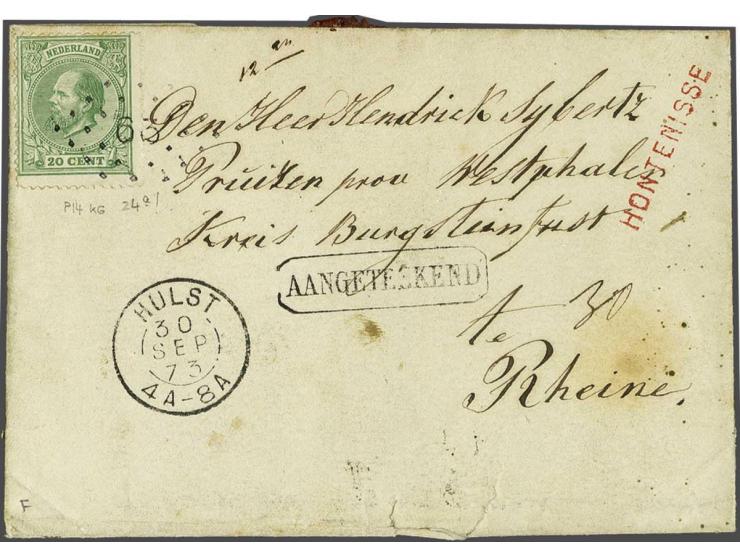 NEDERLAND
20 CENT
HONTENISSE
Den Heer Hendrick Sybertz
Pruizen prov Westphalen
Kreis Burgsteinfurst
AANGETEEKEND
te
30
Rheine.
HULST
30
SEP
73
4A-8A
P14 KG
F